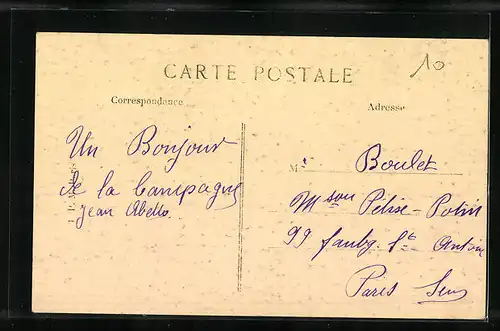 10
CARTE POSTALE
Correspondance
Adresse
Un Bonjour
de la Campagne
Jean
M. Boulet
Mson Félix-Potin
99 faubg St Antoine
Paris